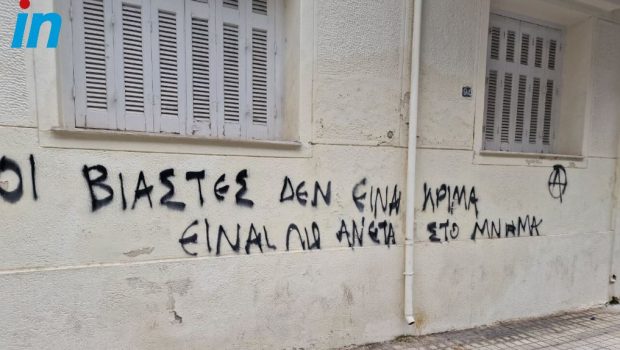 in
ΟΙ ΒΙΑΣΤΕΣ ΔΕΝ ΕΙΝΑΙ ΚΡΙΜΑ
ΕΙΝΑΙ ΠΙΟ ΑΝΕΤΑ ΣΤΟ ΜΝΗΜΑ
Ⓐ